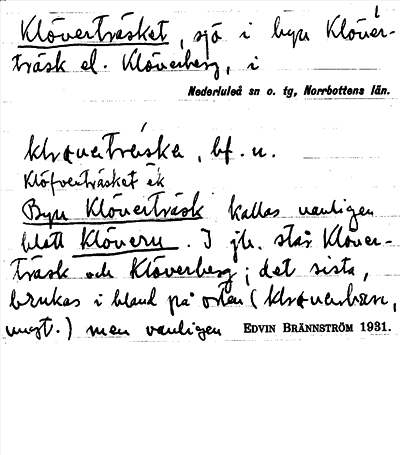 Klöverträsket, sjö i byn Klöver-
träsk el. Klöverberg, i
Nederluleå sn o. tg, Norrbottens län.
bf. n.
Klöfverträsket ek
Byn Klöverträsk kallas vanligen
blott Klövern. I jb. står Klöver-
träsk och Klöverberg; det sista,
brukas i bland på orten (
yngt.) men vanligen EDVIN BRÄNNSTRÖM 1931.